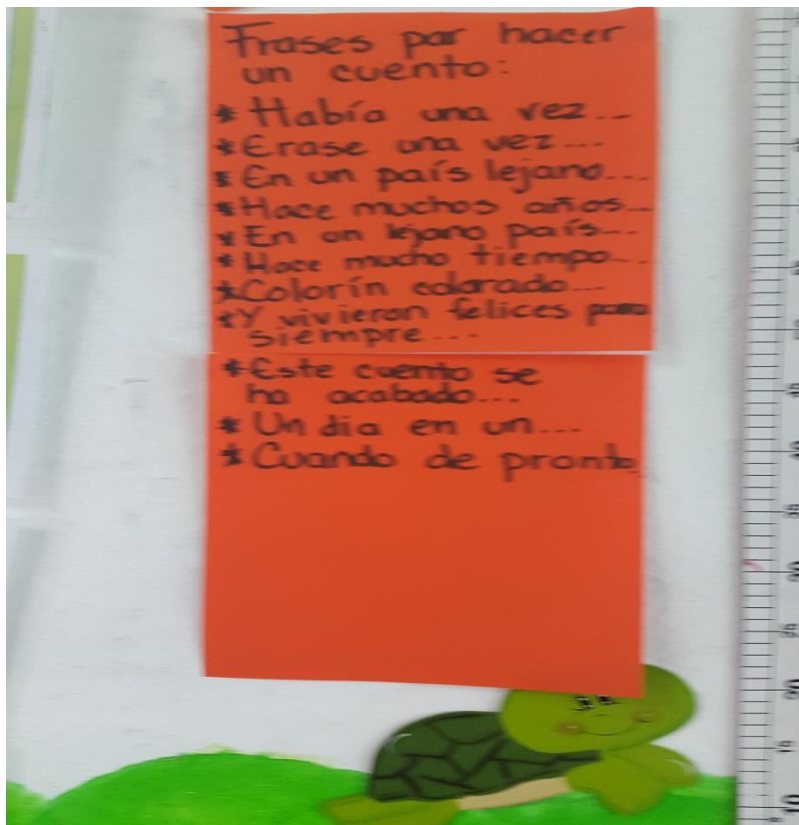 Frases par hacer
un cuento:
* Había una vez...
* Erase una vez...
* En un país lejano...
* Hace muchos años...
* En un lejano país...
* Hace mucho tiempo...
* Colorín colorado...
* Y vivieron felices para
siempre...
* Este cuento se
ha acabado...
* Un dia en un...
* Cuando de pronto